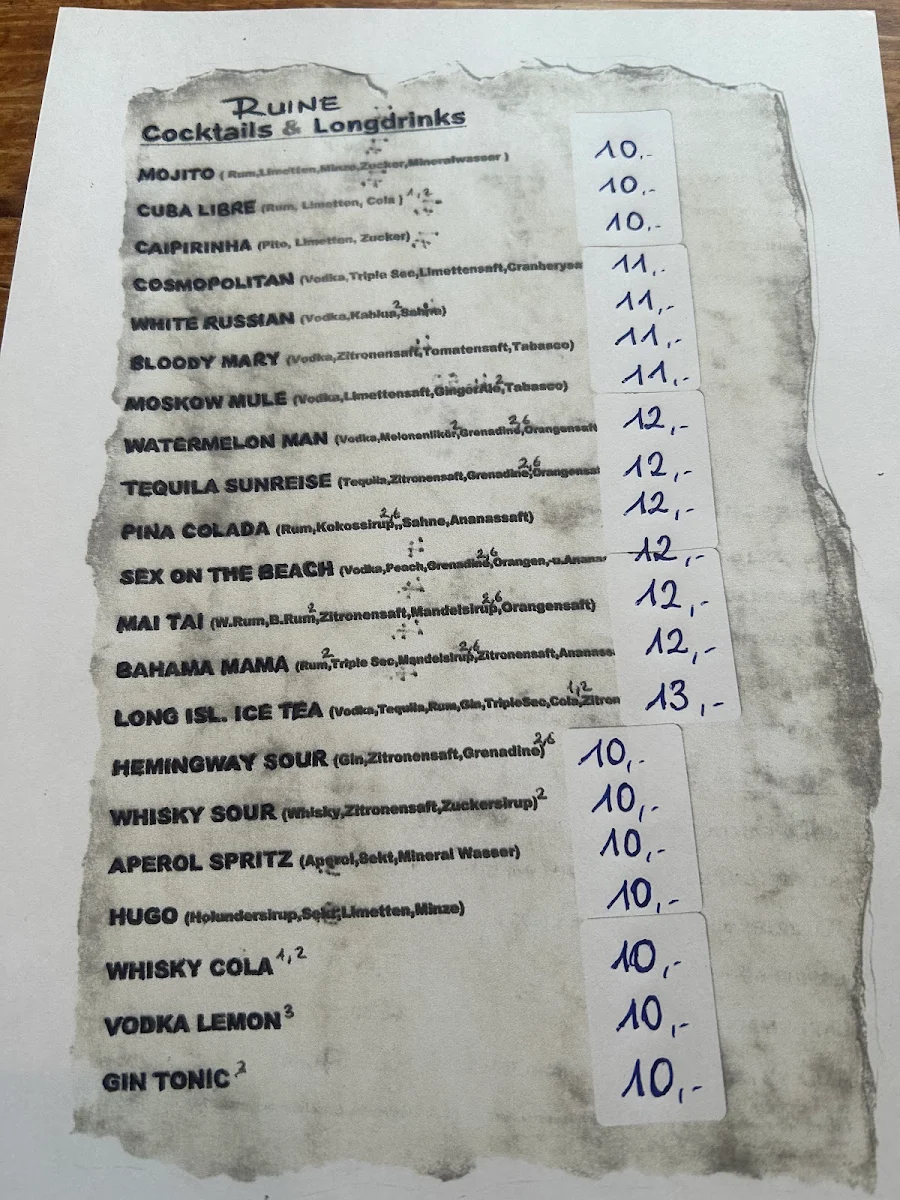 RUINE
Cocktails & Longdrinks
MOJITO (Rum,Limetten,Minze,Zucker,Mineralwasser) 10,-
CUBA LIBRE (Rum, Limetten, Cola) 1,2 10,-
CAIPIRINHA (Pito, Limetten, Zucker) 10,-
COSMOPOLITAN (Vodka,Triple Sec,Limettensaft,Cranberysa 11,-
WHITE RUSSIAN (Vodka,Kahlua,2 Sahne) 11,-
BLOODY MARY (Vodka,Zitronensaft,Tomatensaft,Tabasco) 11,-
MOSKOW MULE (Vodka,Limettensaft,GingerAle,2 Tabasco) 11,-
WATERMELON MAN (Vodka,Melonenlikör,2 Grenadine,2,6 Orangensaft 12,-
TEQUILA SUNREISE (Tequila,Zitronensaft,Grenadine,2,6 Orangensaf 12,-
PINA COLADA (Rum,Kokossirup,2,6,Sahne,Ananassaft) 12,-
SEX ON THE BEACH (Vodka,Peach,Grenadine,2,6 Orangen,-u.Ananas 12,-
MAI TAI (W.Rum,B.Rum,2 Zitronensaft,Mandelsirup,2,6 Orangensaft) 12,-
BAHAMA MAMA (Rum,2 Triple Sec,Mandelsirup,2,6 Zitronensaft,Ananass 12,-
LONG ISL. ICE TEA (Vodka,Tequila,Rum,Gin,TripleSec,Cola,1,2 Zitron 13,-
HEMINGWAY SOUR (Gin,Zitronensaft,Grenadine) 2,6 10,-
WHISKY SOUR (Whisky,Zitronensaft,Zuckersirup) 2 10,-
APEROL SPRITZ (Aperol,Sekt,Mineral Wasser) 10,-
HUGO (Holundersirup,Sekt,Limetten,Minze) 10,-
WHISKY COLA 1,2 10,-
VODKA LEMON 3 10,-
GIN TONIC 2 10,-